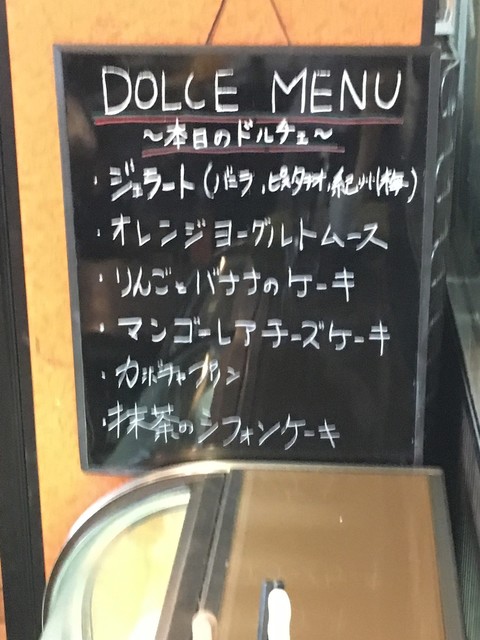 DOLCE MENU
～本日のドルチェ～
・ジェラート(バニラ、ピスタチオ、紀州梅)
・オレンジヨーグルトムース
・りんごとバナナのケーキ
・マンゴーレアチーズケーキ
・カボチャプリン
・抹茶のシフォンケーキ